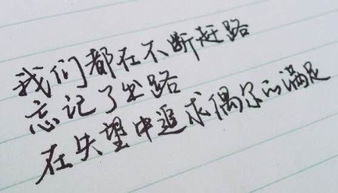 我们都在不断赶路
忘记了出路
在失望中追求偶尔的满足